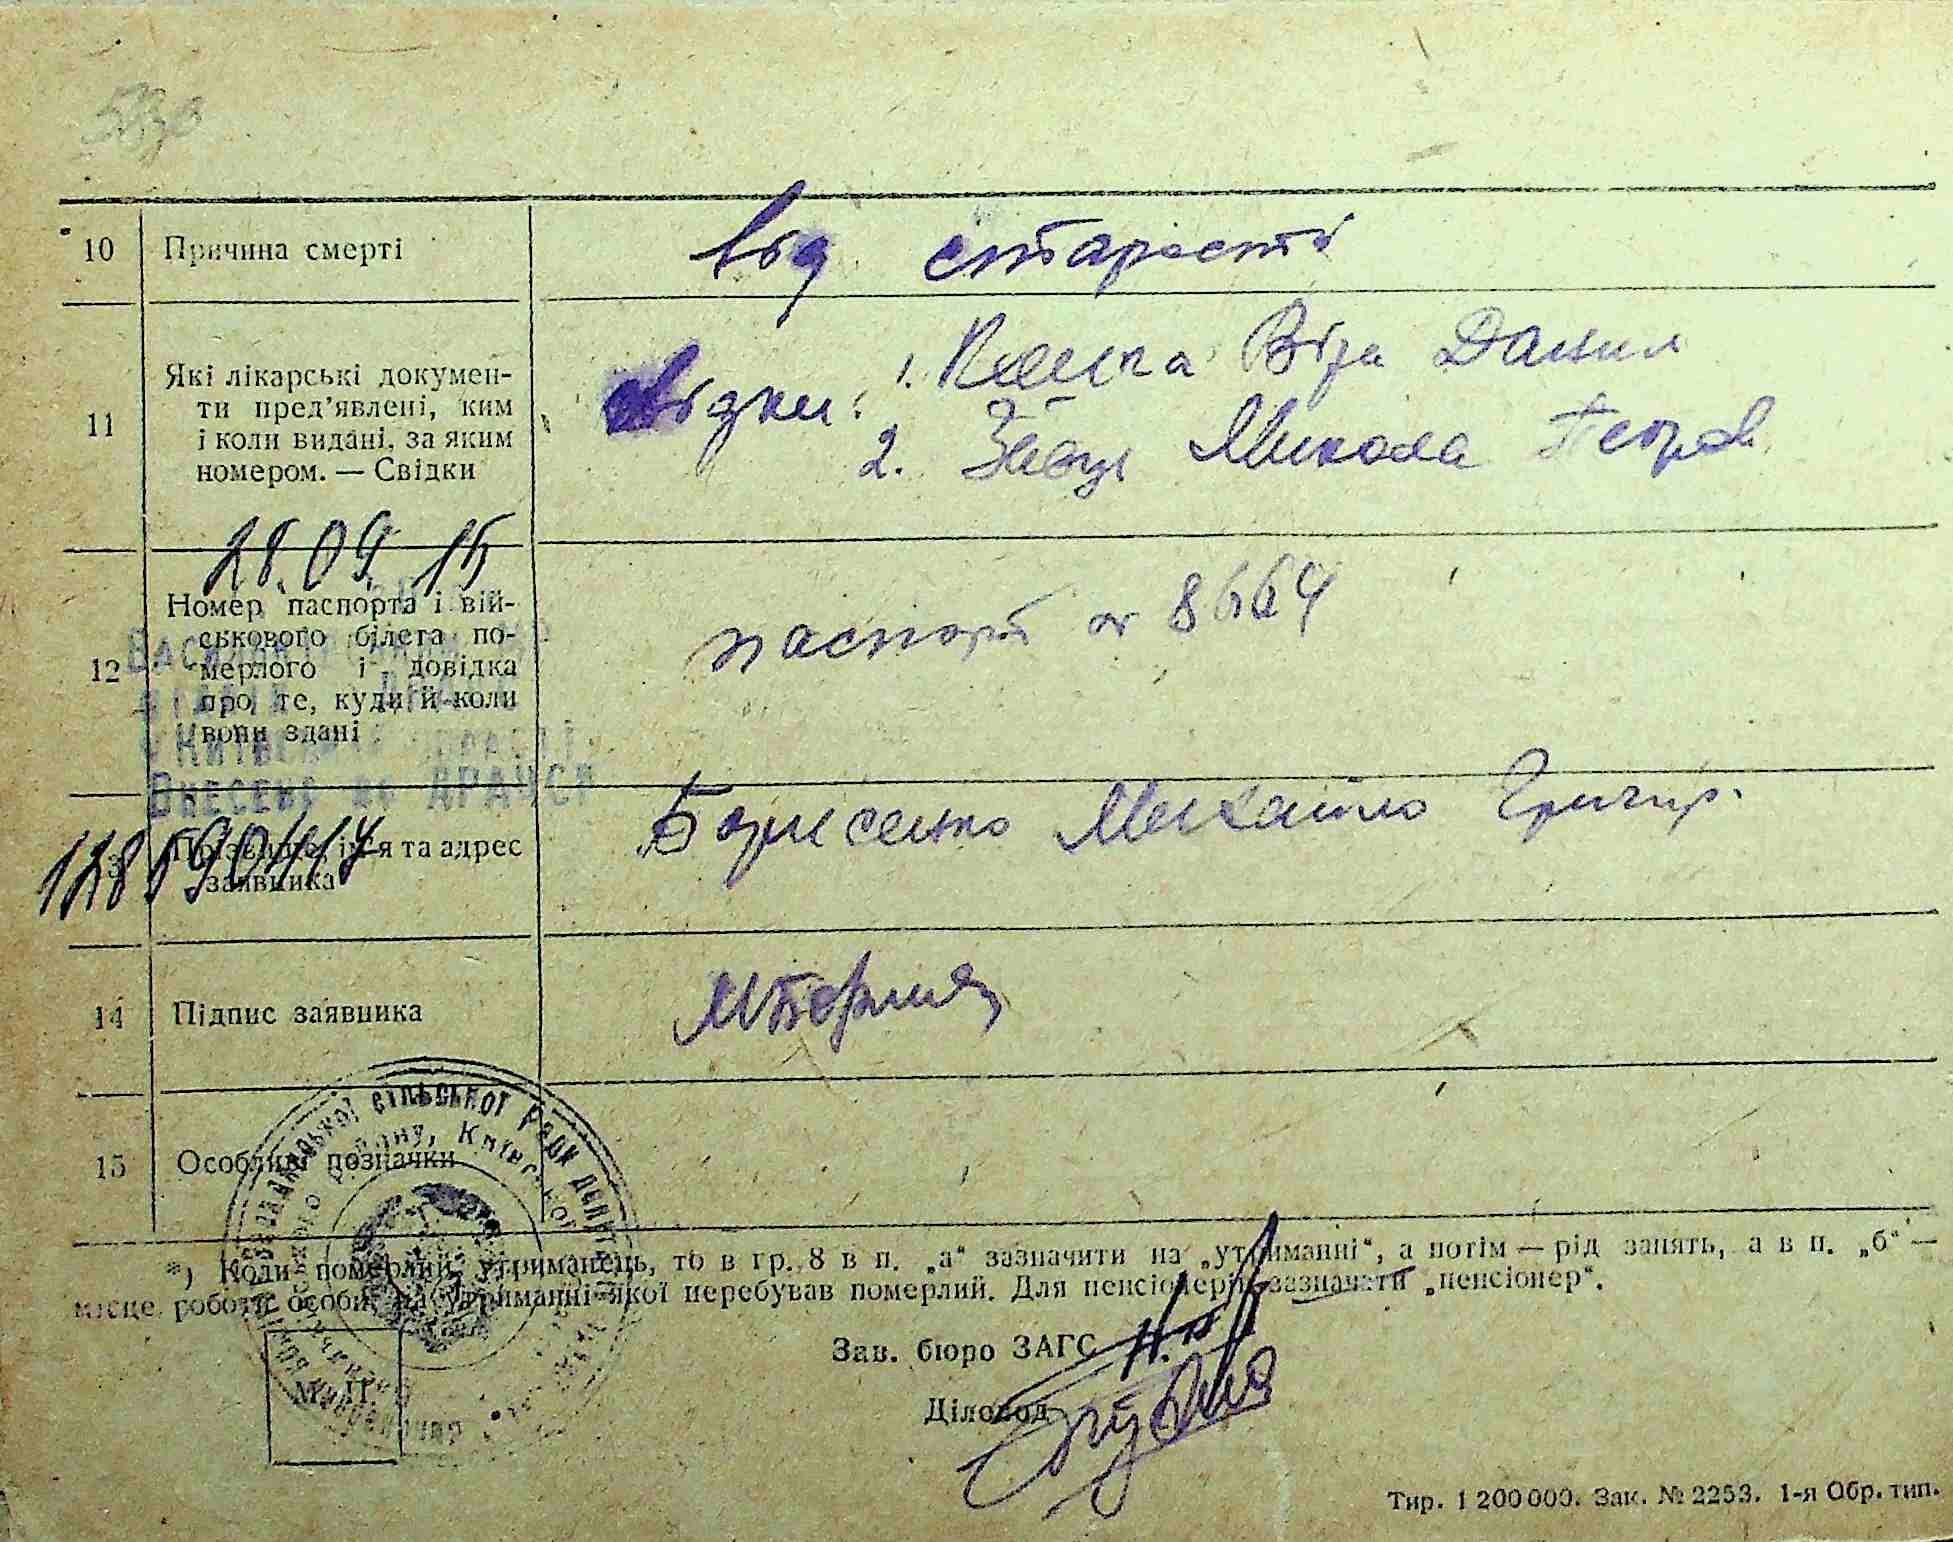 10 Причина смерті від старості
11 Які лікарські докумен-
ти пред'явлені, ким
і коли видані, за яким
номером. — Свідки
свідки: 1. Віра Данил
2. Заєць Микола Петров
28.09.15
12 Номер паспорта і вій-
ськового білета по-
мерлого і довідка
про те, куди й коли
вони здані
паспорт № 8664
Внесено до ДРАЦСГ
128590417
13 Прізвище, ім'я та адрес
заявника
Борисенко Михайло Григор.
14 Підпис заявника
15 Особливі позначки
сільської Ради депутатів
району, Київської
*) Коли померлий утриманець, то в гр. 8 в п. „а" зазначити на „утриманні", а потім — рід занять, а в п. „б" —
місце роботи особи, на утриманні якої перебував померлий. Для пенсіонерів зазначати „пенсіонер".
М. П.
Зав. бюро ЗАГС
Діловод
Тир. 1 200 000. Зак. № 2253. 1-я Обр. тип.